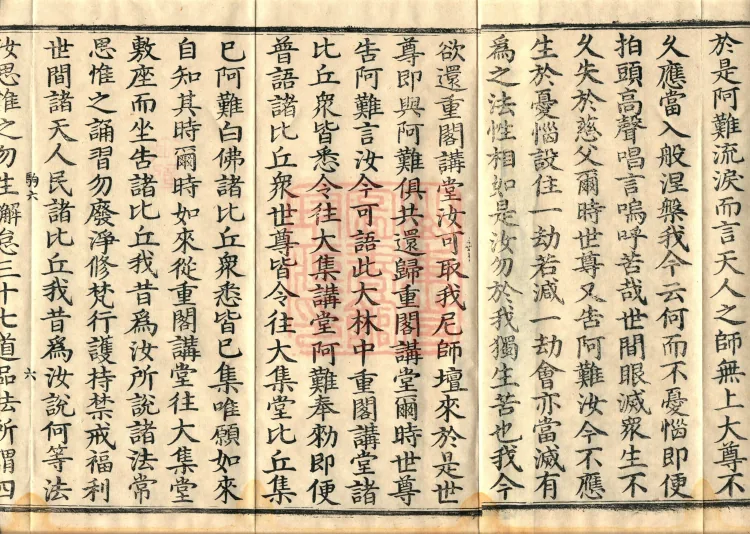 於是阿難流淚而言天人之師無上大尊不
久應當入般涅槃我今云何而不憂惱即便
拍頭高聲唱言嗚呼苦哉世間眼滅眾生不
久失於慈父爾時世尊又告阿難汝今不應
生於憂惱設住一劫若減一劫會亦當滅有
為之法性相如是汝勿於我獨生苦也我今
欲還重閣講堂汝可取我尼師壇來於是世
尊即與阿難俱共還歸重閣講堂爾時世尊
告阿難言汝今可語此大林中重閣講堂諸
比丘眾皆悉令往大集講堂阿難奉勑即便
普語諸比丘眾世尊皆令往大集堂比丘集
已阿難白佛諸比丘眾悉皆已集唯願如來
自知其時爾時如來從重閣講堂往大集堂
敷座而坐告諸比丘我昔為汝所說諸法常
思惟之誦習勿廢淨修梵行護持禁戒福利
世間諸天人民諸比丘我昔為汝說何等法
駒六 六
汝思惟之勿生懈怠三十七道品法所謂四